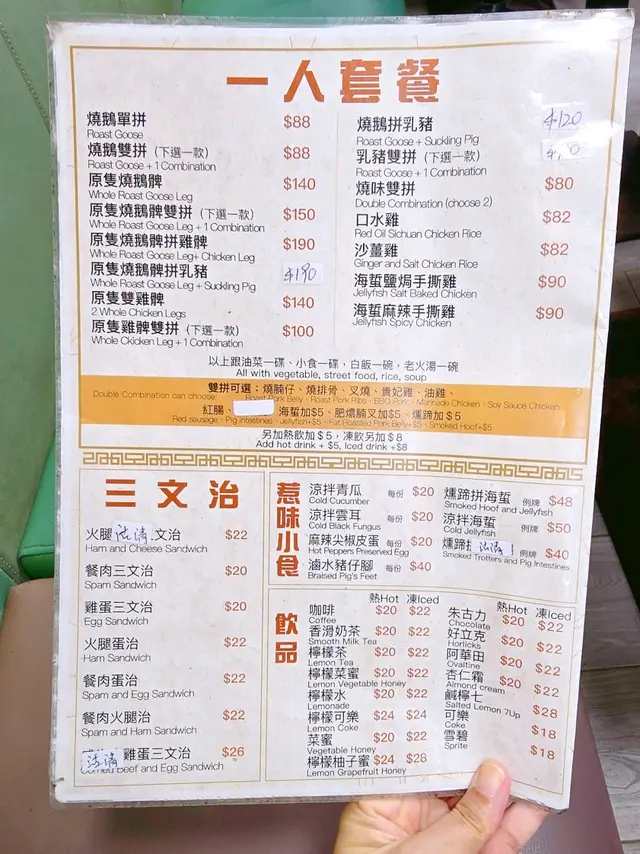 一人套餐
燒鵝單拼 $88
Roast Goose
燒鵝雙拼（下選一款） $88
Roast Goose + 1 Combination
原隻燒鵝髀 $140
Whole Roast Goose Leg
原隻燒鵝髀雙拼（下選一款） $150
Whole Roast Goose Leg + 1 Combination
原隻燒鵝髀拼雞髀 $190
Whole Roast Goose Leg+ Chicken Leg
原隻燒鵝髀拼乳豬 $190
Whole Roast Goose Leg + Suckling Pig
原隻雙雞髀 $140
2 Whole Chicken Legs
原隻雞髀雙拼（下選一款） $100
Whole Ckicken Leg + 1 Combination
燒鵝拼乳豬 $120
Roast Goose + Suckling Pig
乳豬雙拼（下選一款）
Roast Goose + 1 Combination
燒味雙拼 $80
Double Combination (choose 2)
口水雞 $82
Red Oil Sichuan Chicken Rice
沙薑雞 $82
Ginger and Salt Chicken Rice
海蜇鹽焗手撕雞 $90
Jellyfish Salt Baked Chicken
海蜇麻辣手撕雞 $90
Jellyfish Spicy Chicken
以上跟油菜一碟、小食一碟，白飯一碗，老火湯一碗
All with vegetable, street food, rice, soup
雙拼可選：燒腩仔、燒排骨、叉燒、貴妃雞、油雞、
Double Combination can choose: Roast Pork Belly、Roast Pork Ribs、BBQ Pork、Marinade Chicken、Soy Sauce Chicken
紅腸、海蜇加$5、肥燶腩叉加$5、燻蹄加$5
Red sausage、Pig intestines、Jellyfish+$5、Fat Roasted Pork Belly+$5、Smoked Hoof+$5
另加熱飲加$5，凍飲另加$8
Add hot drink + $5, Iced drink +$8
三文治
火腿 文治 $22
Ham and Cheese Sandwich
餐肉三文治 $20
Spam Sandwich
雞蛋三文治 $20
Egg Sandwich
火腿蛋治 $22
Ham Sandwich
餐肉蛋治 $22
Spam and Egg Sandwich
餐肉火腿治 $22
Spam and Ham Sandwich
雞蛋三文治 $26
Corned Beef and Egg Sandwich
惹味小食
涼拌青瓜 每份 $20
Cold Cucumber
涼拌雲耳 每份 $20
Cold Black Fungus
麻辣尖椒皮蛋 每份 $20
Hot Peppers Preserved Egg
滷水豬仔腳 每份 $40
Braised Pig's Feet
燻蹄拼海蜇 例牌 $48
Smoked Hoof and Jellyfish
涼拌海蜇 例牌 $50
Cold Jellyfish
燻蹄 例牌 $40
Smoked Trotters and Pig Intestines
飲品
熱Hot 凍Iced
咖啡 $20 $22
Coffee
香滑奶茶 $20 $22
Smooth Milk Tea
檸檬茶 $20 $22
Lemon Tea
檸檬菜蜜 $20 $22
Lemon Vegetable Honey
檸檬水 $20 $22
Lemonade
檸檬可樂 $24 $24
Lemon Coke
菜蜜 $20 $22
Vegetable Honey
檸檬柚子蜜 $24 $28
Lemon Grapefruit Honey
熱Hot 凍Iced
朱古力 $20 $22
Chocolate
好立克 $20 $22
Horlicks
阿華田 $20 $22
Ovaltine
杏仁霜 $20 $22
Almond cream
鹹檸七 $28
Salted Lemon 7Up
可樂 $18
Coke
雪碧 $18
Sprite